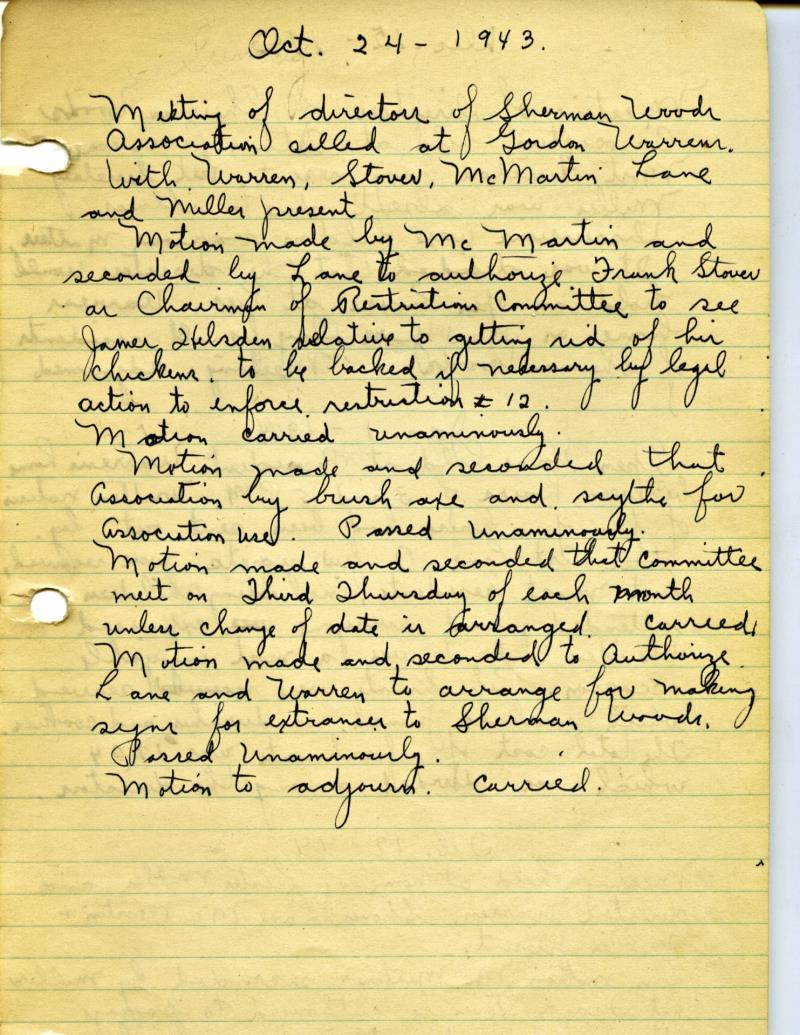 Oct. 24 - 1943.
Meeting of directors of Sherman Woods
Association called at Gordon Warrens.
With Warren, Stover, McMartin Lane
and Miller present.
Motion made by Mc Martin and
seconded by Lane to authorize Frank Stover
as Chairman of Restriction Committee to see
James Hilsden relative to getting rid of his
chickens. to be backed if necessary by legal
action to enforce restriction # 12.
Motion carried unaminously.
Motion made and seconded that
Association buy brush axe and scythe for
Association use. Passed Unaminously.
Motion made and seconded that committee
meet on Third Thursday of each month
unless change of date is arranged. carried.
Motion made and seconded to Authorize
Lane and Warren to arrange for making
signs for extrances to Sherman Woods.
Passed Unaminously.
Motion to adjourn. Carried.